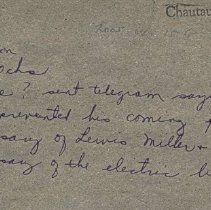 Chautau
on
Ochs
e? sent telegram say
prevented his coming
sary of Lewis Miller +
sary of the electric li